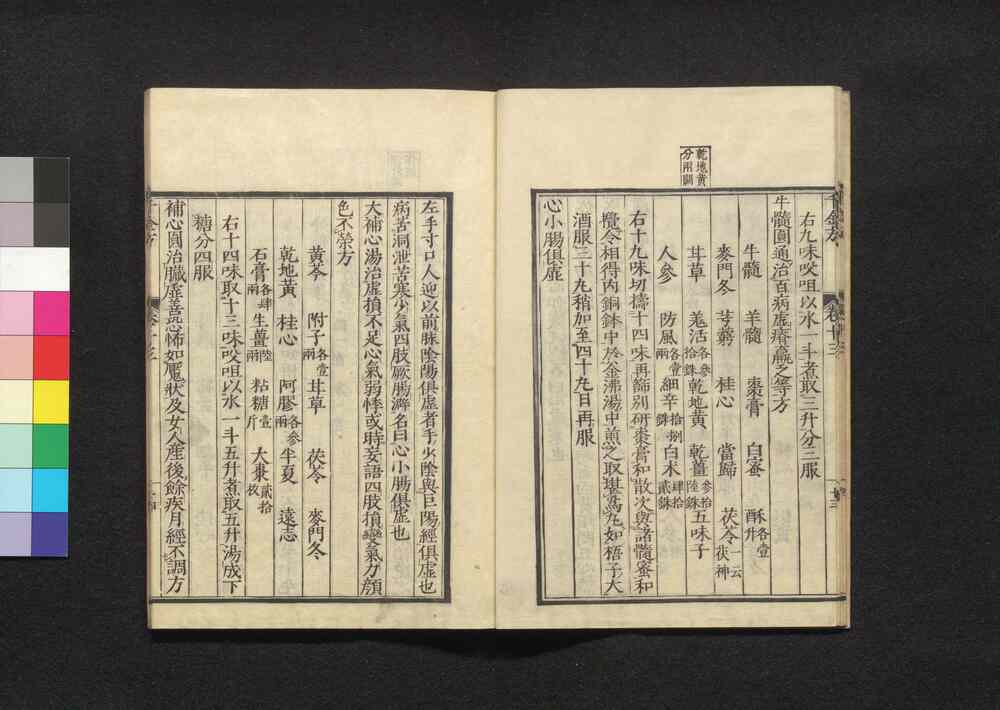 千金方
卷十三
乾地黄
分兩闕
右九味㕮咀以水一斗煮取三升分三服
牛髓圓通治百病虚瘠羸乏等方
牛髓 羊髓 棗膏 白蜜 酥各壹升
麥門冬 芎藭 桂心 當歸 茯苓一云茯神
甘草 羌活各參拾銖 乾地黄 乾薑參拾陸銖 五味子
人參 防風各壹兩 細辛拾捌銖 白术肆拾貳銖
右十九味切擣十四味再篩別研棗膏和散次與諸髓蜜和
攪令相得内銅鉢中於釜沸湯中煎之取堪為丸如梧子大
酒服三十丸稍加至四十丸日再服
心小腸俱虚
左手寸口人迎以前脉陰陽俱虚者手少陰與巨陽經俱虚也
病苦洞泄苦寒少氣四肢厥腸澼名曰心小腸俱虚也
大補心湯治虚損不足心氣弱悸或時妄語四肢損變氣力顔
色不榮方
黄芩 附子各壹兩 甘草 茯苓 麥門冬
乾地黄 桂心 阿膠各參兩 半夏 遠志
石膏各肆兩 生薑陸兩 粘糖壹斤 大棗貳拾枚
右十四味取十三味㕮咀以水一斗五升煮取五升湯成下
糖分四服
補心圓治臟虚善恐怖如魘狀及女人産後餘疾月經不調方